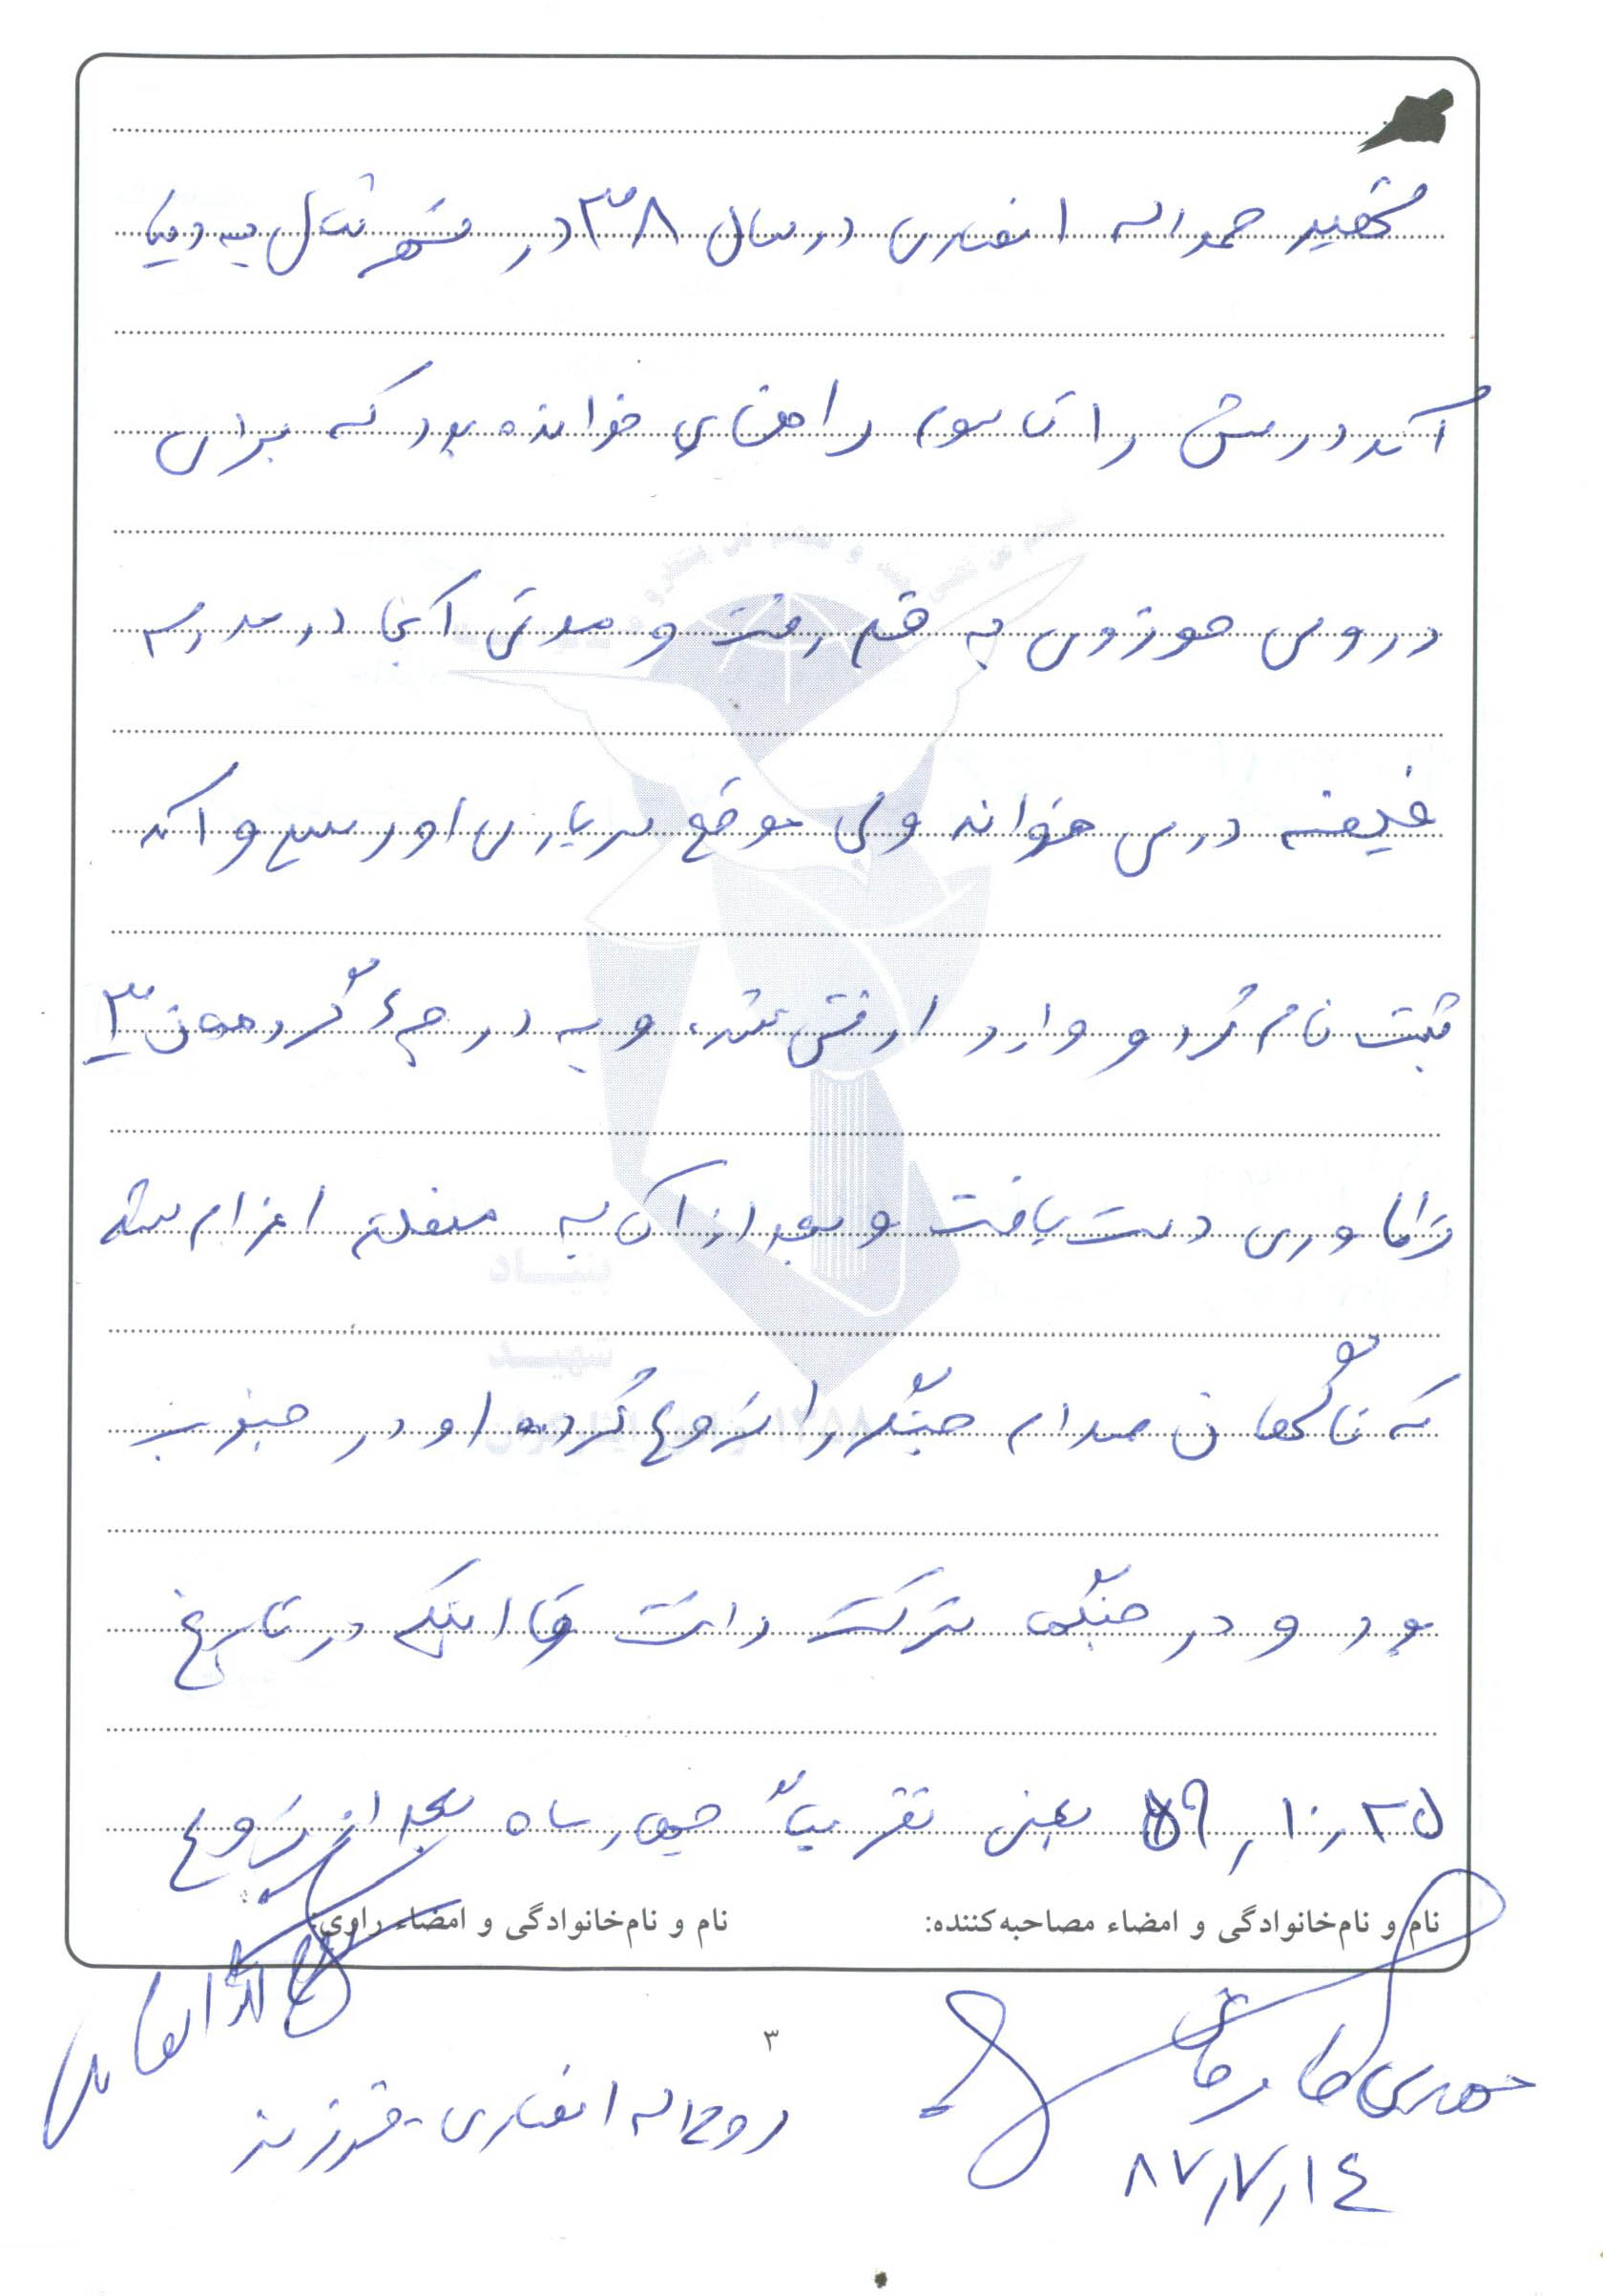 شهید حمداله انصاری در سال ۳۸ در شهر تتل به دنیا
آمد درسش را تا سوم راهنمایی خوانده بود که برای
دروس حوزوی به قم رفت و مدتی آنجا در مدرسه
فیضیه درس خواند ولی موقع سربازی او رسید و آمد
ثبت نام کرد و وارد ارتش شد، و به درجهٔ گروهبان ۳
تراناوری دست یافت و بعد از آن به منطقه اعزام شد
که ناگهان صدام جنگ را شروع کرده او در جنوب
بود و در جنگ شرکت داشت تا اینکه در تاریخ
۲۵ ر ۱۰ ر ۵۹ یعنی تقریباً چهار ماه بعد از شروع
نام و نام‌خانوادگی و امضاء مصاحبه‌کننده: نام و نام‌خانوادگی و امضاء راوی:
مهدی
روح اله انصاری - فرزند
۸۷٫۷٫۱۴
۳
بنیاد
شهید